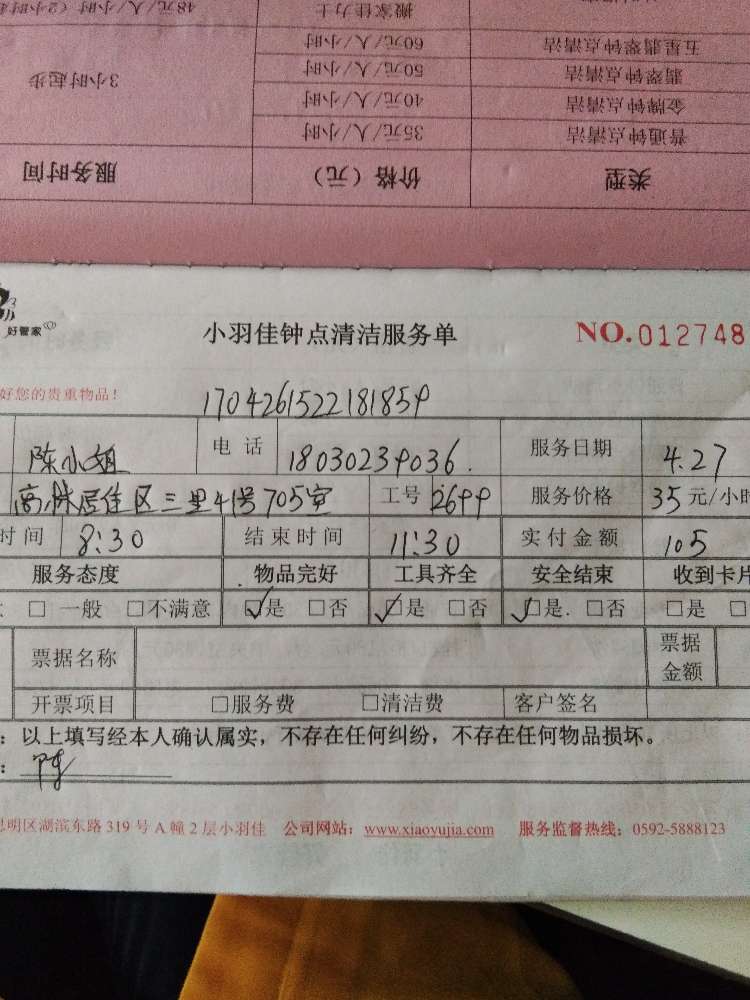 搬家佳力士 48元/人/小时（2小时
五星翡翠钟点清洁 60元/人/小时
翡翠钟点清洁 50元/人/小时 3小时起步
金牌钟点清洁 40元/人/小时
普通钟点清洁 35元/人/小时
类型 价格（元） 服务时间
好管家
小羽佳钟点清洁服务单 NO.012748
好您的贵重物品！
1704261522181859
陈小姐 电话 18030239036. 服务日期 4.27
高林居住区三里41号705室 工号 2699 服务价格 35元/小时
时间 8:30 结束时间 11:30 实付金额 105
服务态度 物品完好 工具齐全 安全结束 收到卡片
□ 一般 □不满意 ☑是 □否 ☑是 □否 ☑是. □否 □是 □
票据名称 票据金额
开票项目 □服务费 □清洁费 客户签名
：以上填写经本人确认属实，不存在任何纠纷，不存在任何物品损坏。
：陈
思明区湖滨东路 319 号 A 幢 2 层小羽佳 公司网站：www.xiaoyujia.com 服务监督热线：0592-5888123